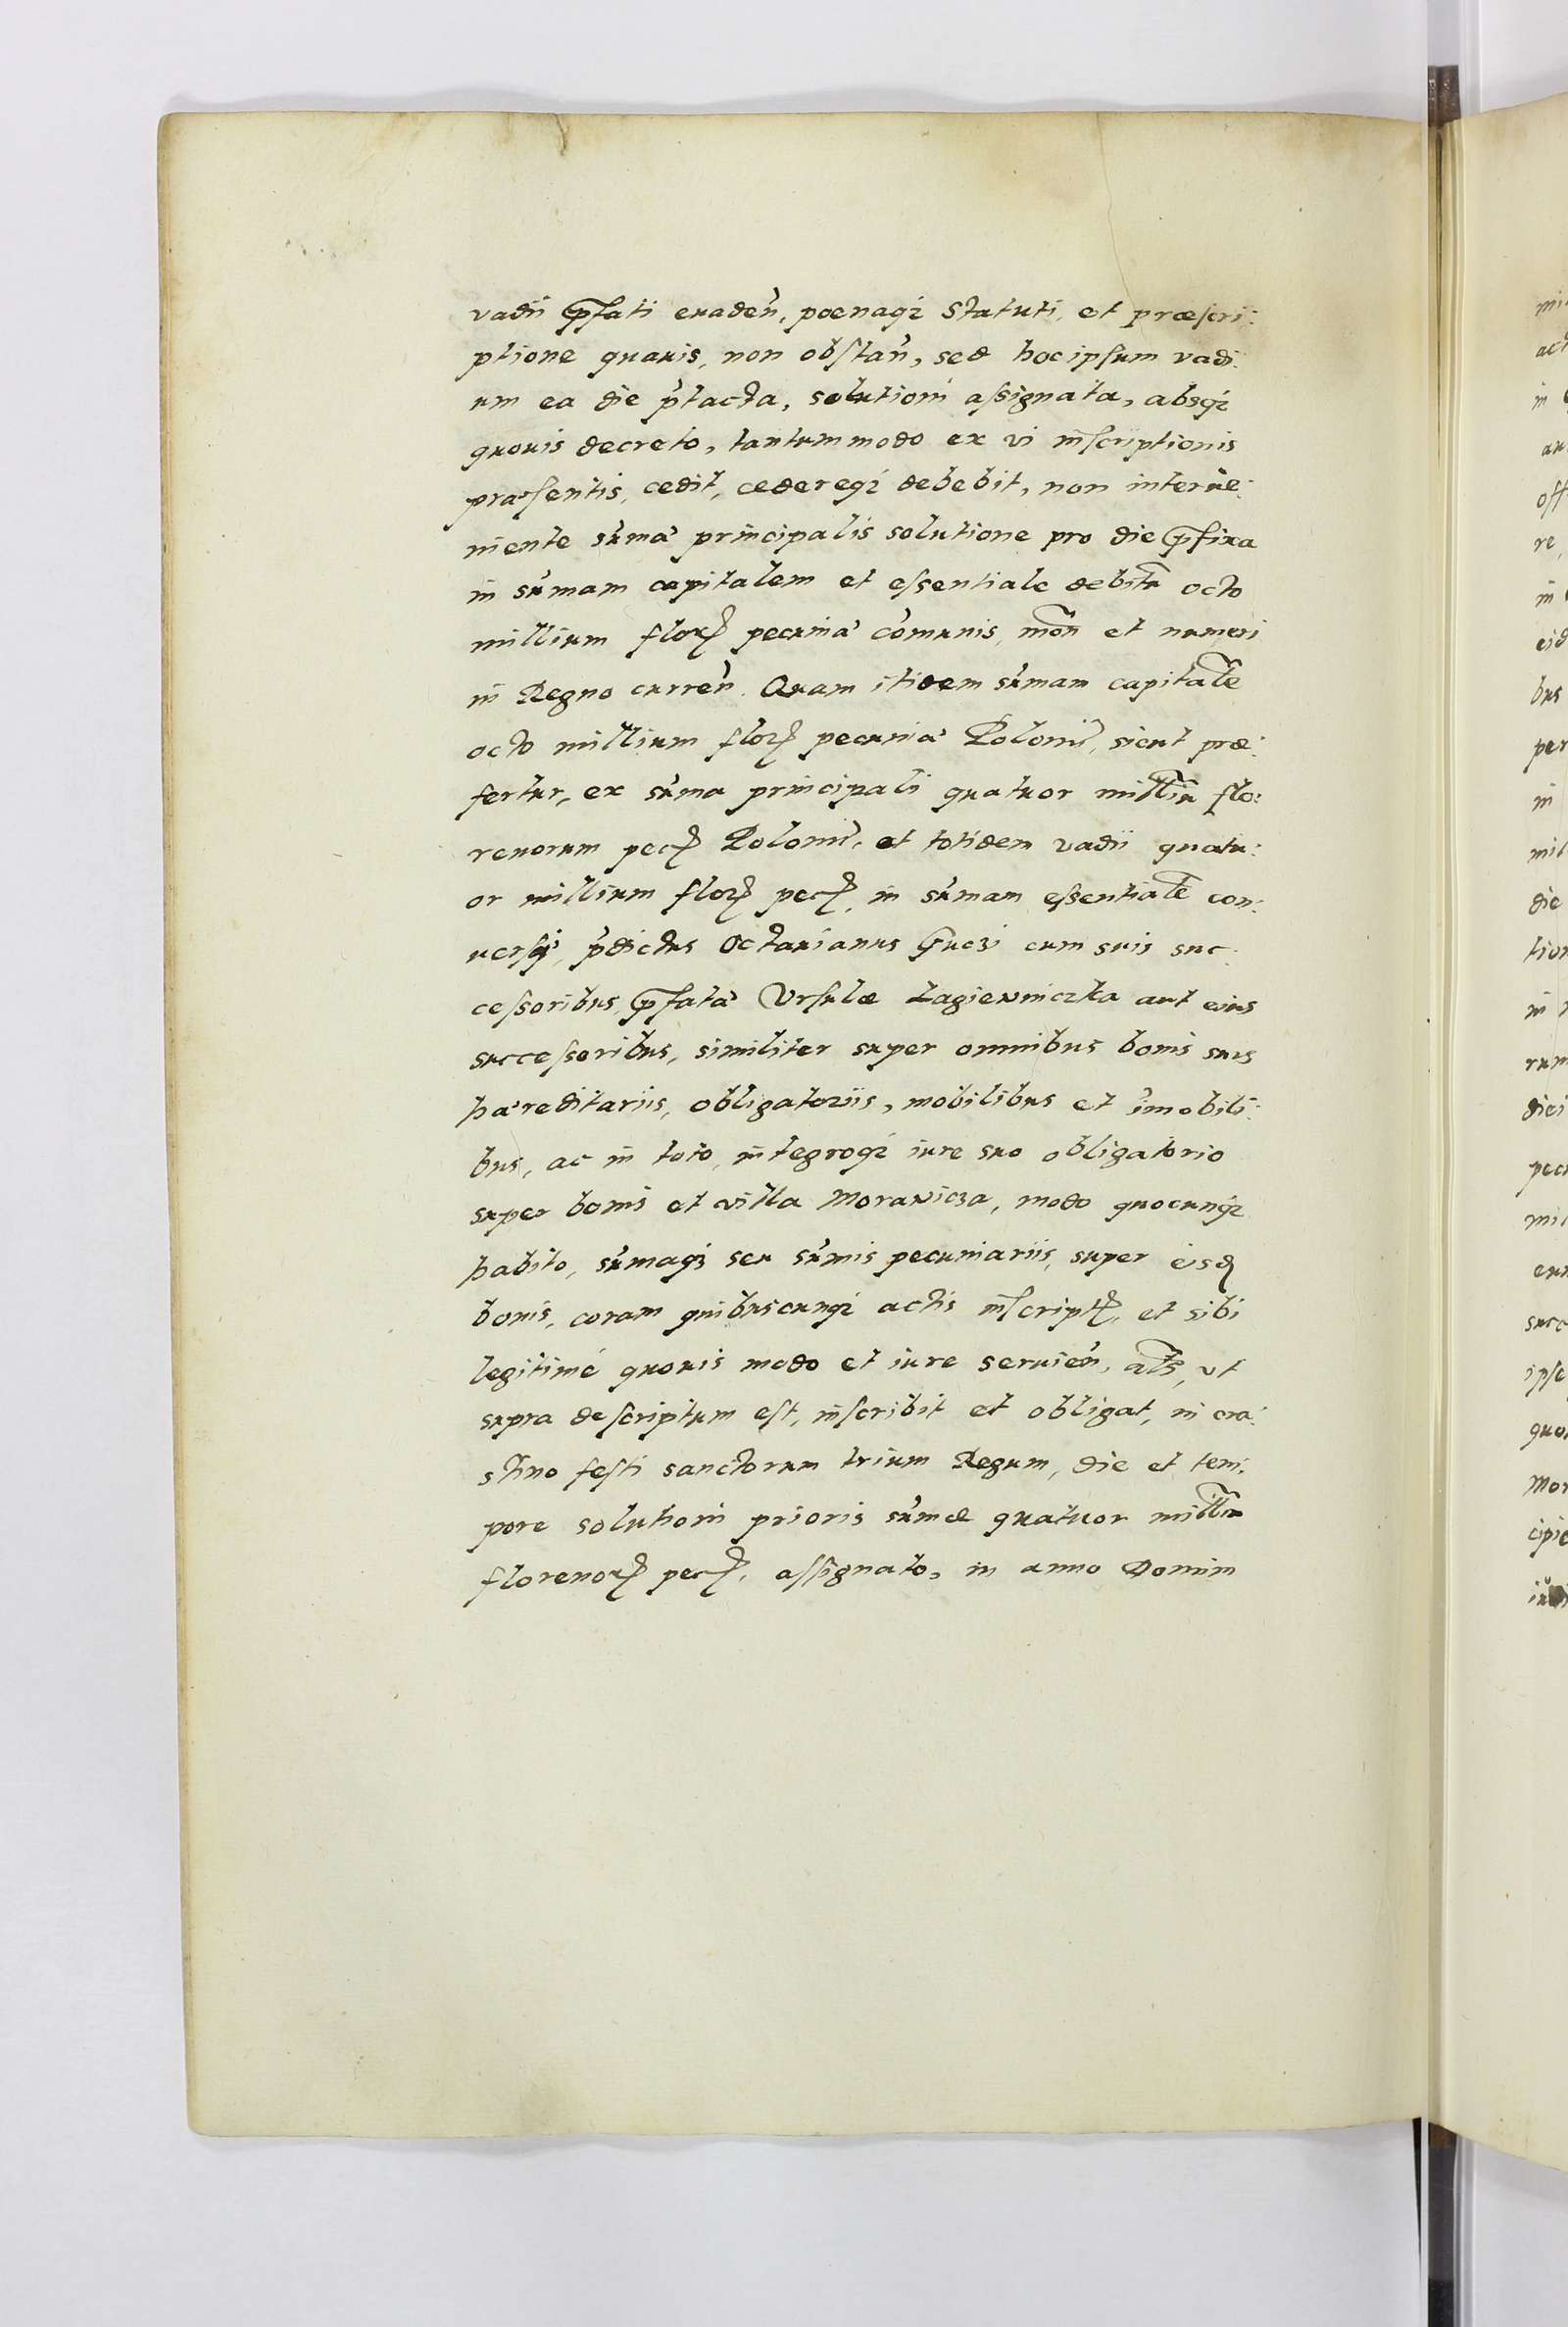 vadii p̃fati euadeñ, poenaqȝ Statuti, et præſcri:
ptione quauis, non obſtañ, sed hoc ipſum vadi:
um ea die p̓tacta, solutioni aſsignata, absqȝ
quouis decreto, tantummodo ex vi inſcriptionis
præſentis, cedit, cedereqȝ debebit, non interue:
niente sum̃æ principalis solutione pro die p̃fixa
in sum̃am capitalem et eſsentiale debitũ octo
millium floꝝ pecuniæ com̃unis, moñ et numeri
in Regno curreñ. Quam itidem sum̃am capitalẽ
octo millium floꝝ pecuniæ Poloni͂, sicut præ:
fertur, ex sum̃a principali quatuor milliũ flo:
renorum pec Poloni͂, et totidem vadii quatu:
or millium floꝝ pec, in sum̃am eſsentialẽ con:
uerſis, p̓dictus Octauianus Guczi cum suis suc:
ceſsoribus, p̃fatæ Vrſulæ Lagiewniczka aut eius
succeſsoribus, similiter super omnibus bonis suis
hæreditariis, obligatoriis, mobilibus et im̃obili:
bus, ac in toto, integroqȝ iure suo obligatorio
super bonis et villa Morawicza, modo quocunqȝ
habito, sum̃aqȝ seu sum̃is pecuniariis, super eisd
bonis, coram quibuscunqȝ actis inſcript, et sibi
legitimé quouis modo et iure seruień, al̃s, vt
supra deſcriptum eſt, inſcribit et obligat, in cra:
stino feſti sanctorum trium Regum, die et tem:
pore solutioni prioris sum̃æ quatuor milliũ
florenoꝝ pec, aſſignato, in anno Domini